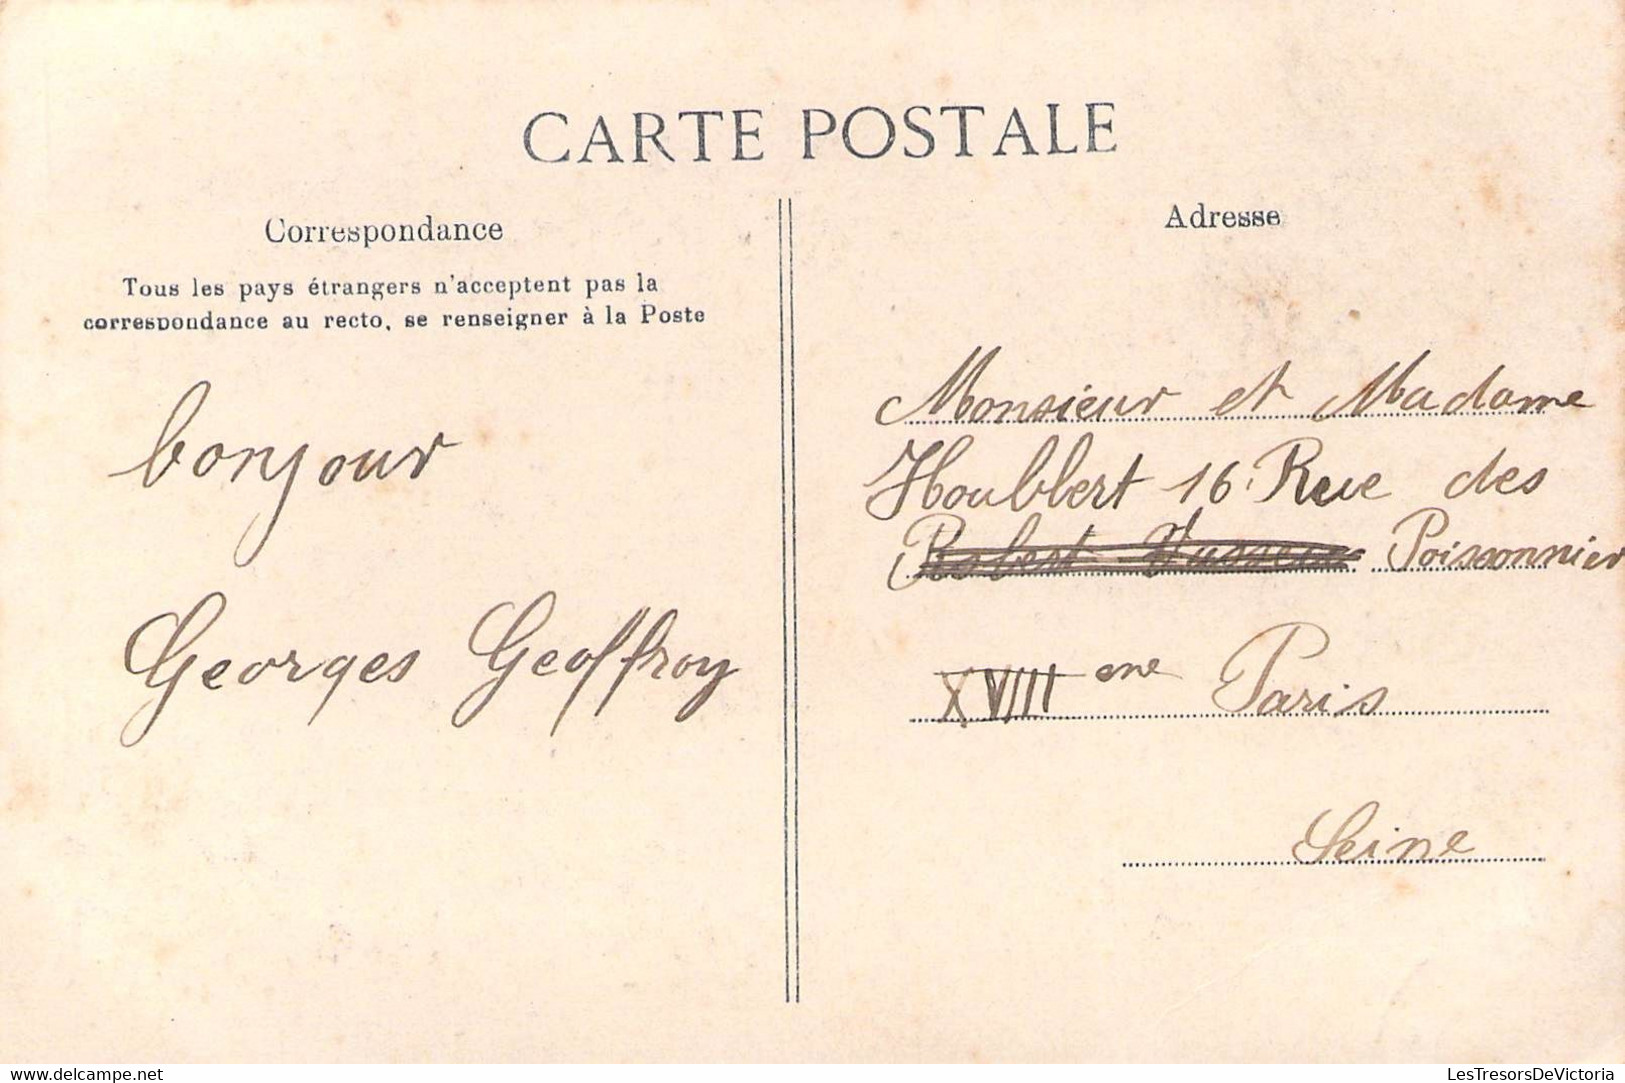 CARTE POSTALE
Correspondance
Tous les pays étrangers n'acceptent pas la
correspondance au recto, se renseigner à la Poste
bonjour
Georges Geoffroy
Adresse
Monsieur et Madame
Houbbert 16 Rue des
Robert Poissonnier
XVIII eme Paris
Seine
LesTresorsDeVictoria
www.delcampe.net